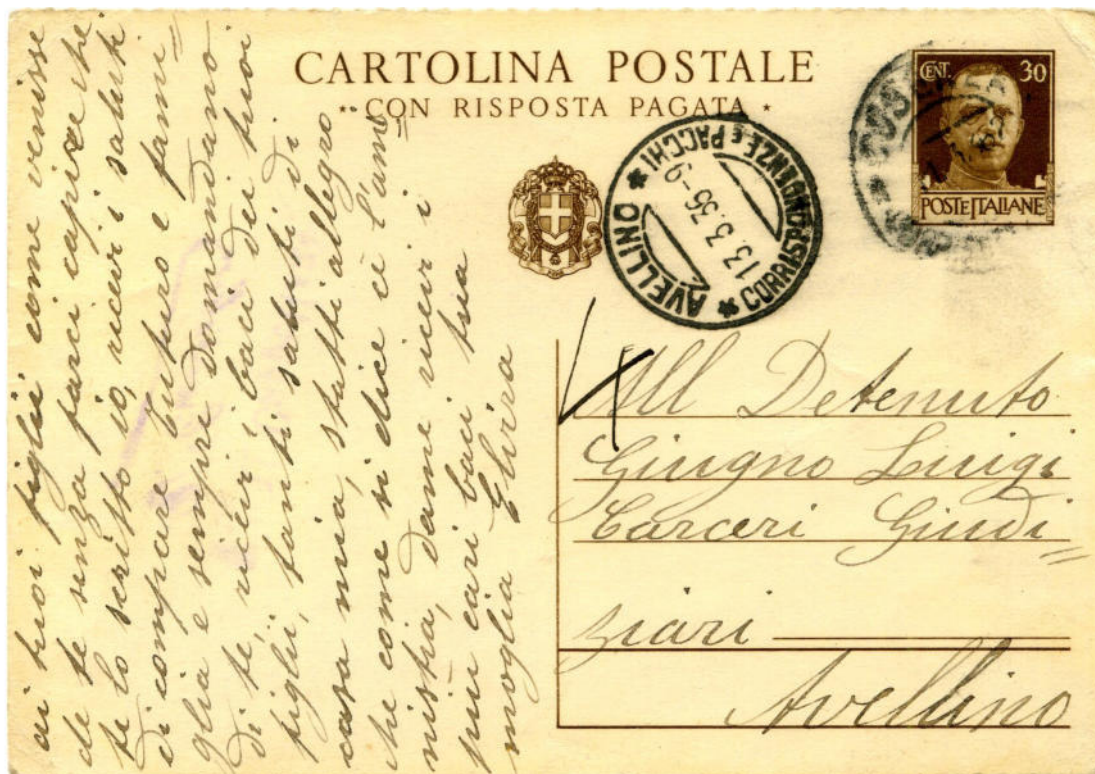 CARTOLINA POSTALE
CON RISPOSTA PAGATA
CENT. 30
POSTE ITALIANE
AVELLINO
CORRISPONDENZE E PACCHI
13.3.36-9
All Detenuto
Giugno Luigi
Carceri Giudi=
ziari
Avellino
ai tuoi figli come venisse
da te senza farci capire che
te lo scritto io, ricevi i saluti
di compare Fusuro e fami=
glia e sempre domandano
di te, ricevi i baci dei tuoi
figlii, tanti saluti di
casa mia, statti allegro
che come si dice cè l'am=
nistia, dame ricevi i
piu cari baci tua
moglia Elvira